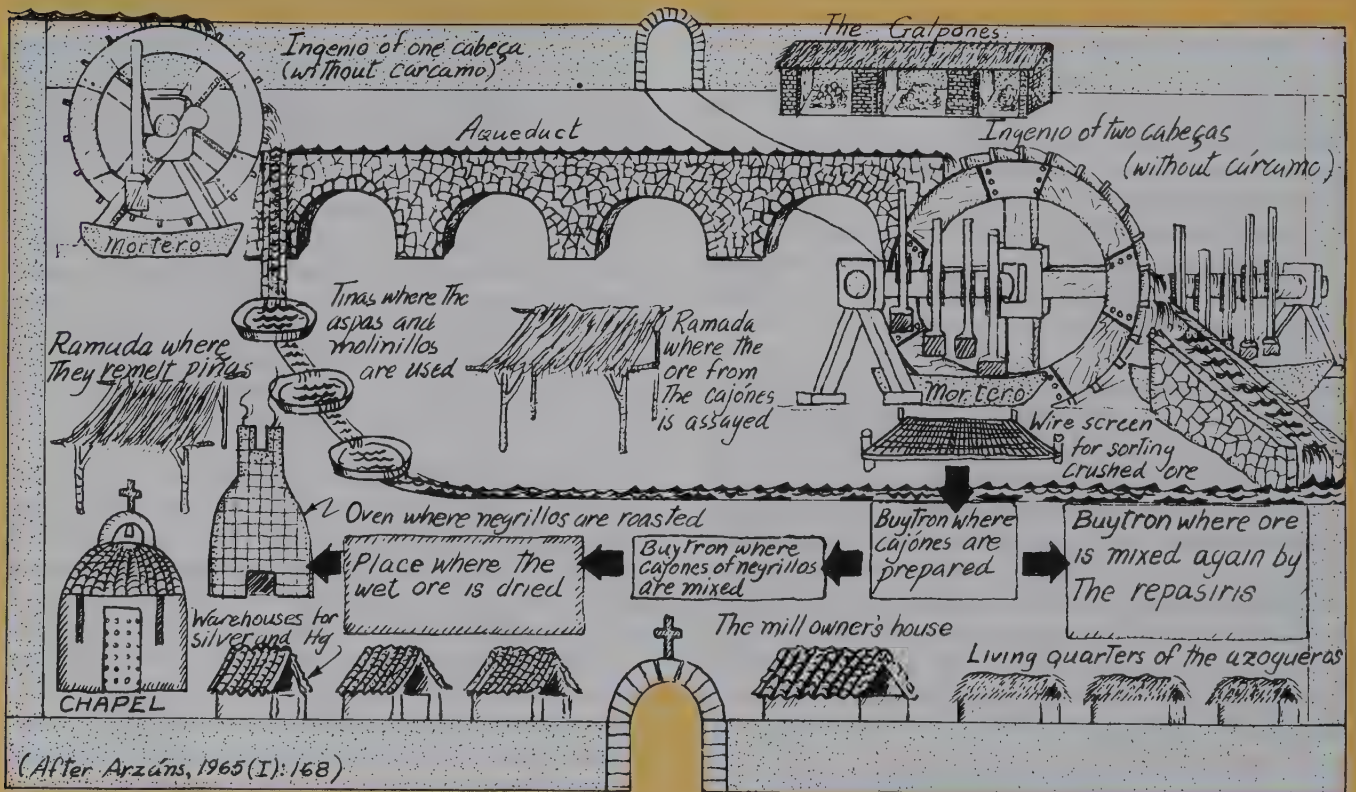 Ingenio of one cabeça
(without carcamo)
The Galpones
Aqueduct
Ingenio of two cabeças
(without cárcamo)
Mortero
Tinas where the
aspas and
molinillos
are used
Ramada where
They remelt piñas
Ramada
where the
ore from
The cajónes
is assayed
Mortero
Wire screen
for sorting
crushed ore
Oven where negrillos are roasted
Place where the
wet ore is dried
Buytron where
cajones of negrillos
are mixed
Buytron where
cajónes are
prepared
Buytron where ore
is mixed again by
The repasiris
Warehouses for
silver and Hg
The mill owner's house
Living quarters of the azogueros
CHAPEL
(After Arzáns, 1965 (I): 168)